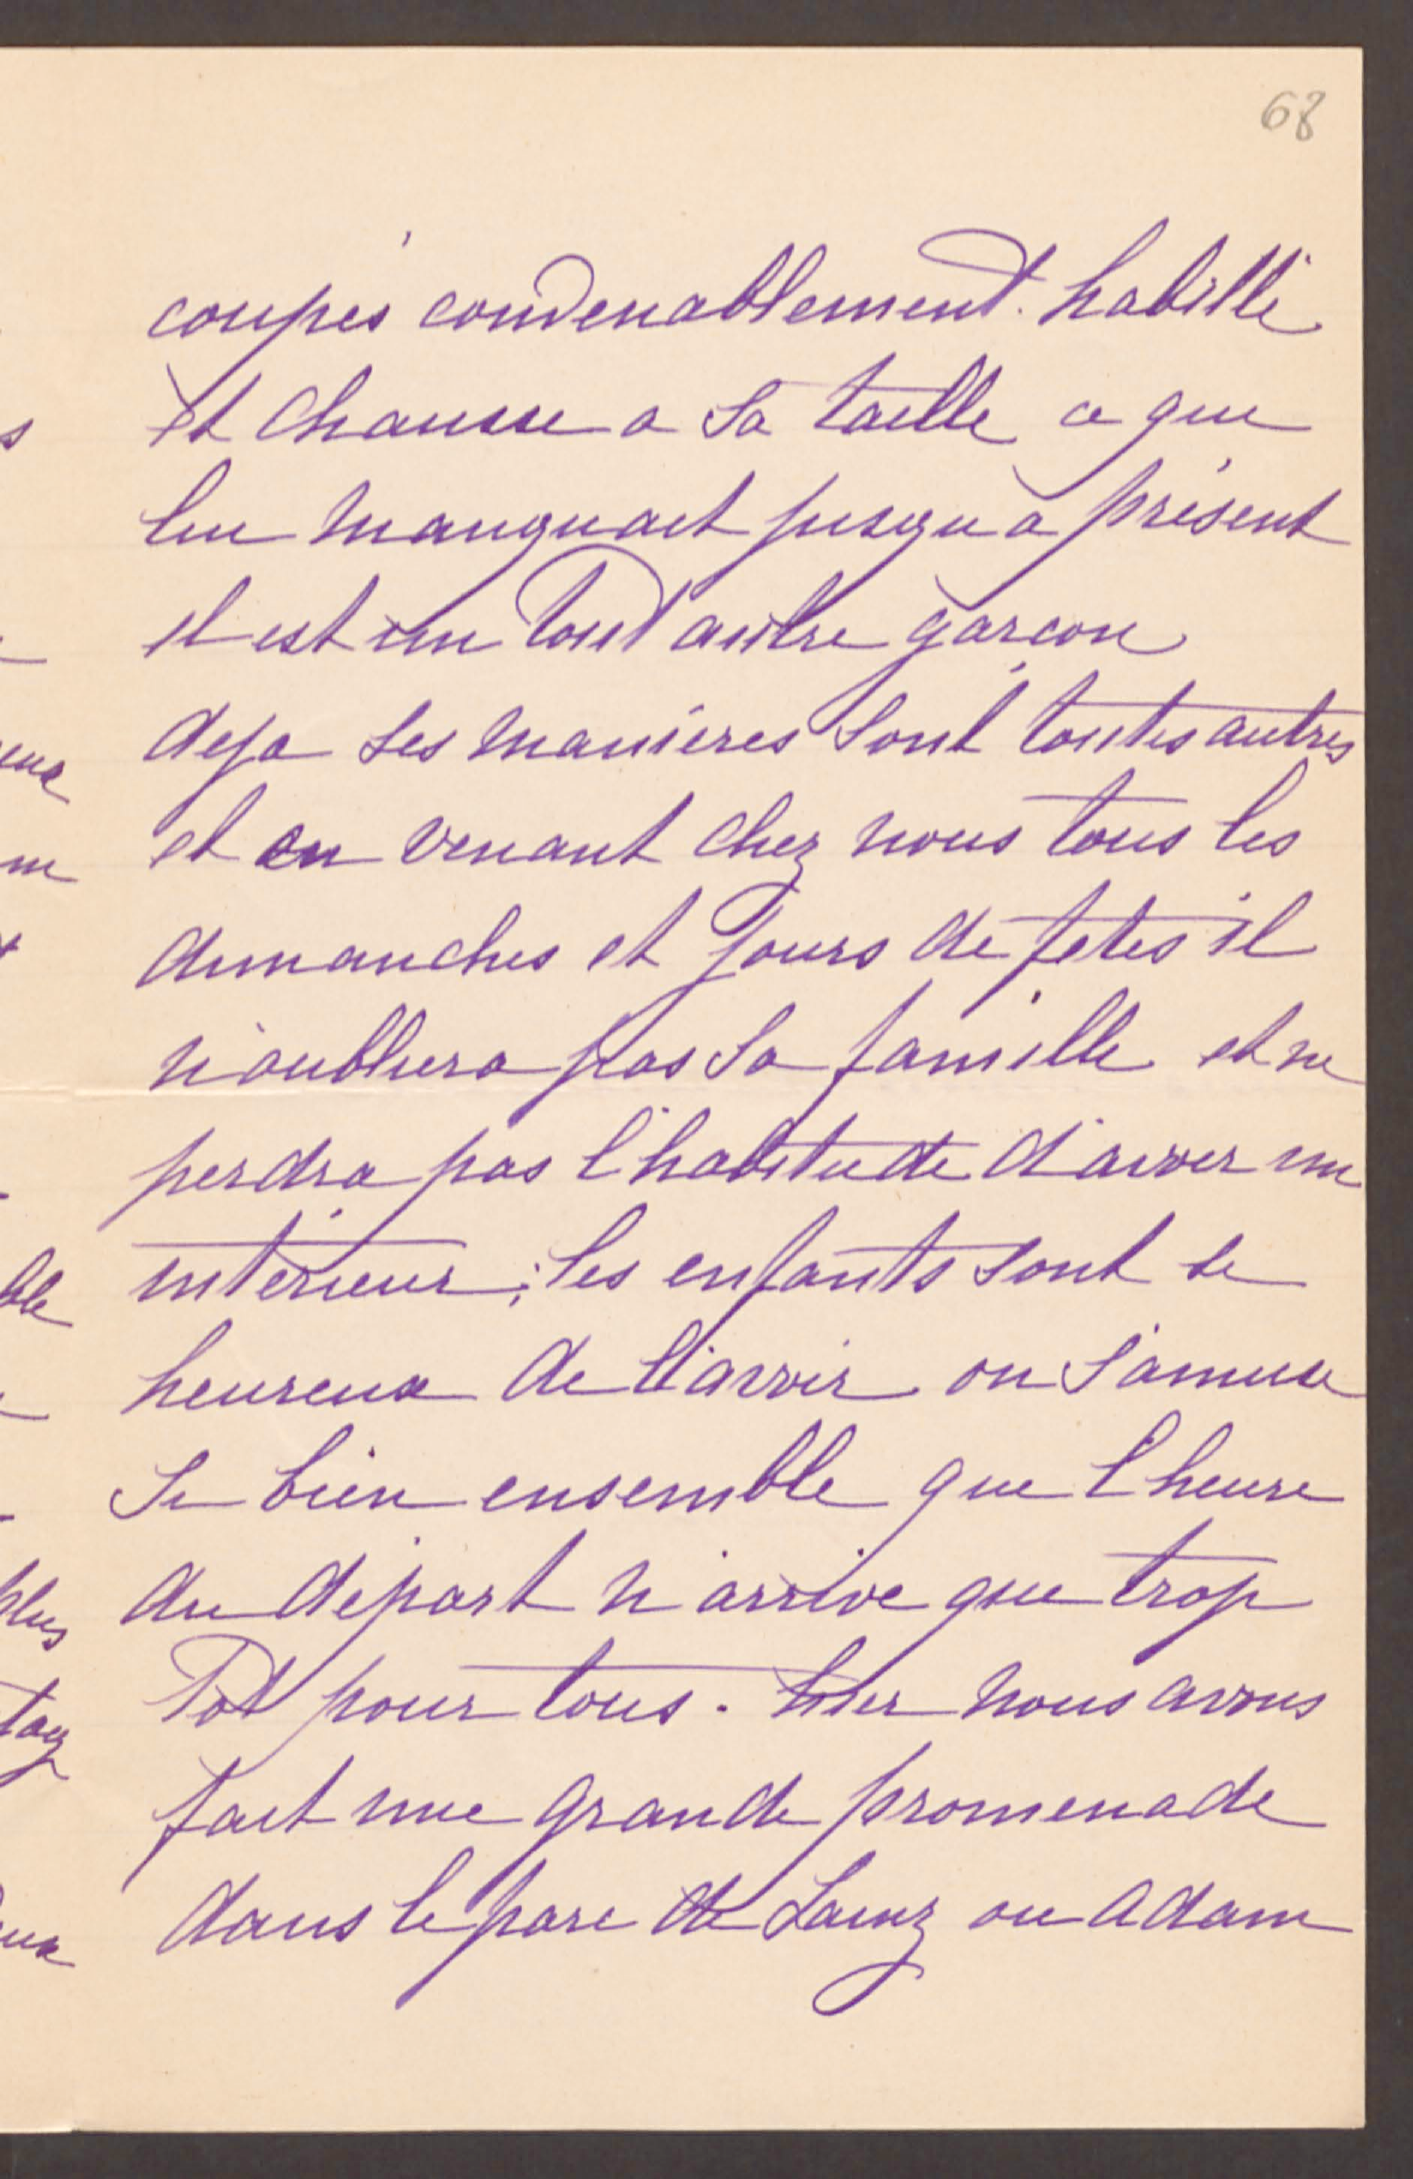 68
coupés convenablement. habillé
et chausse a sa taille ce que
lui manquait jusqu a présent
il est un tout autre garcon
deja ses manières sont toutes autres
et en venant chez nous tous les
dimanches et jours de fetes il
n'oubliera pas sa famille et ne
perdra pas l'habitude d'avoir un
intérieur; les enfants sont si
heureux de l'avoir on s'amuse
si bien ensemble que l heure
du départ n'arrive que trop
Tot pour tous. hier nous avons
fait une grande promenade
dans le parc de ou Adam